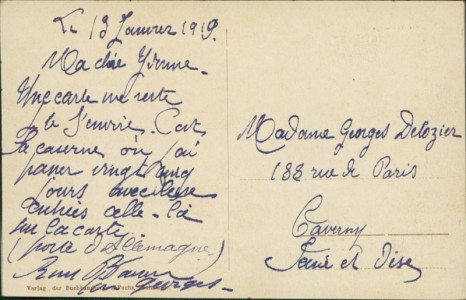 Le 13 Janvier 1919.
Ma chère Yvonne.
Une carte me reste
je t'envoie. C'est
la caserne où j'ai
passé vingt cinq
jours
celle-là
sur la carte
(poste d'Allemagne)
Georges
Verlag der
Madame Georges Delozier
188 rue de Paris
Taverny
Seine et Oise